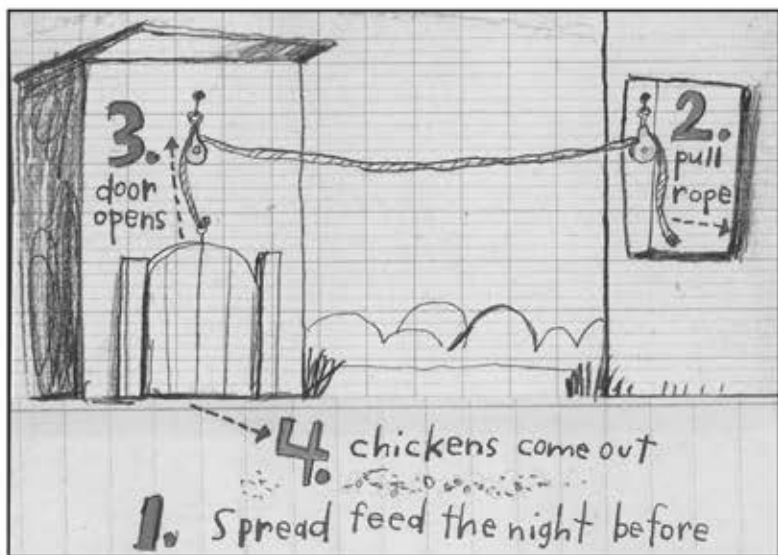 3.
door
opens
2.
pull
rope
4. chickens come out
1. Spread feed the night before